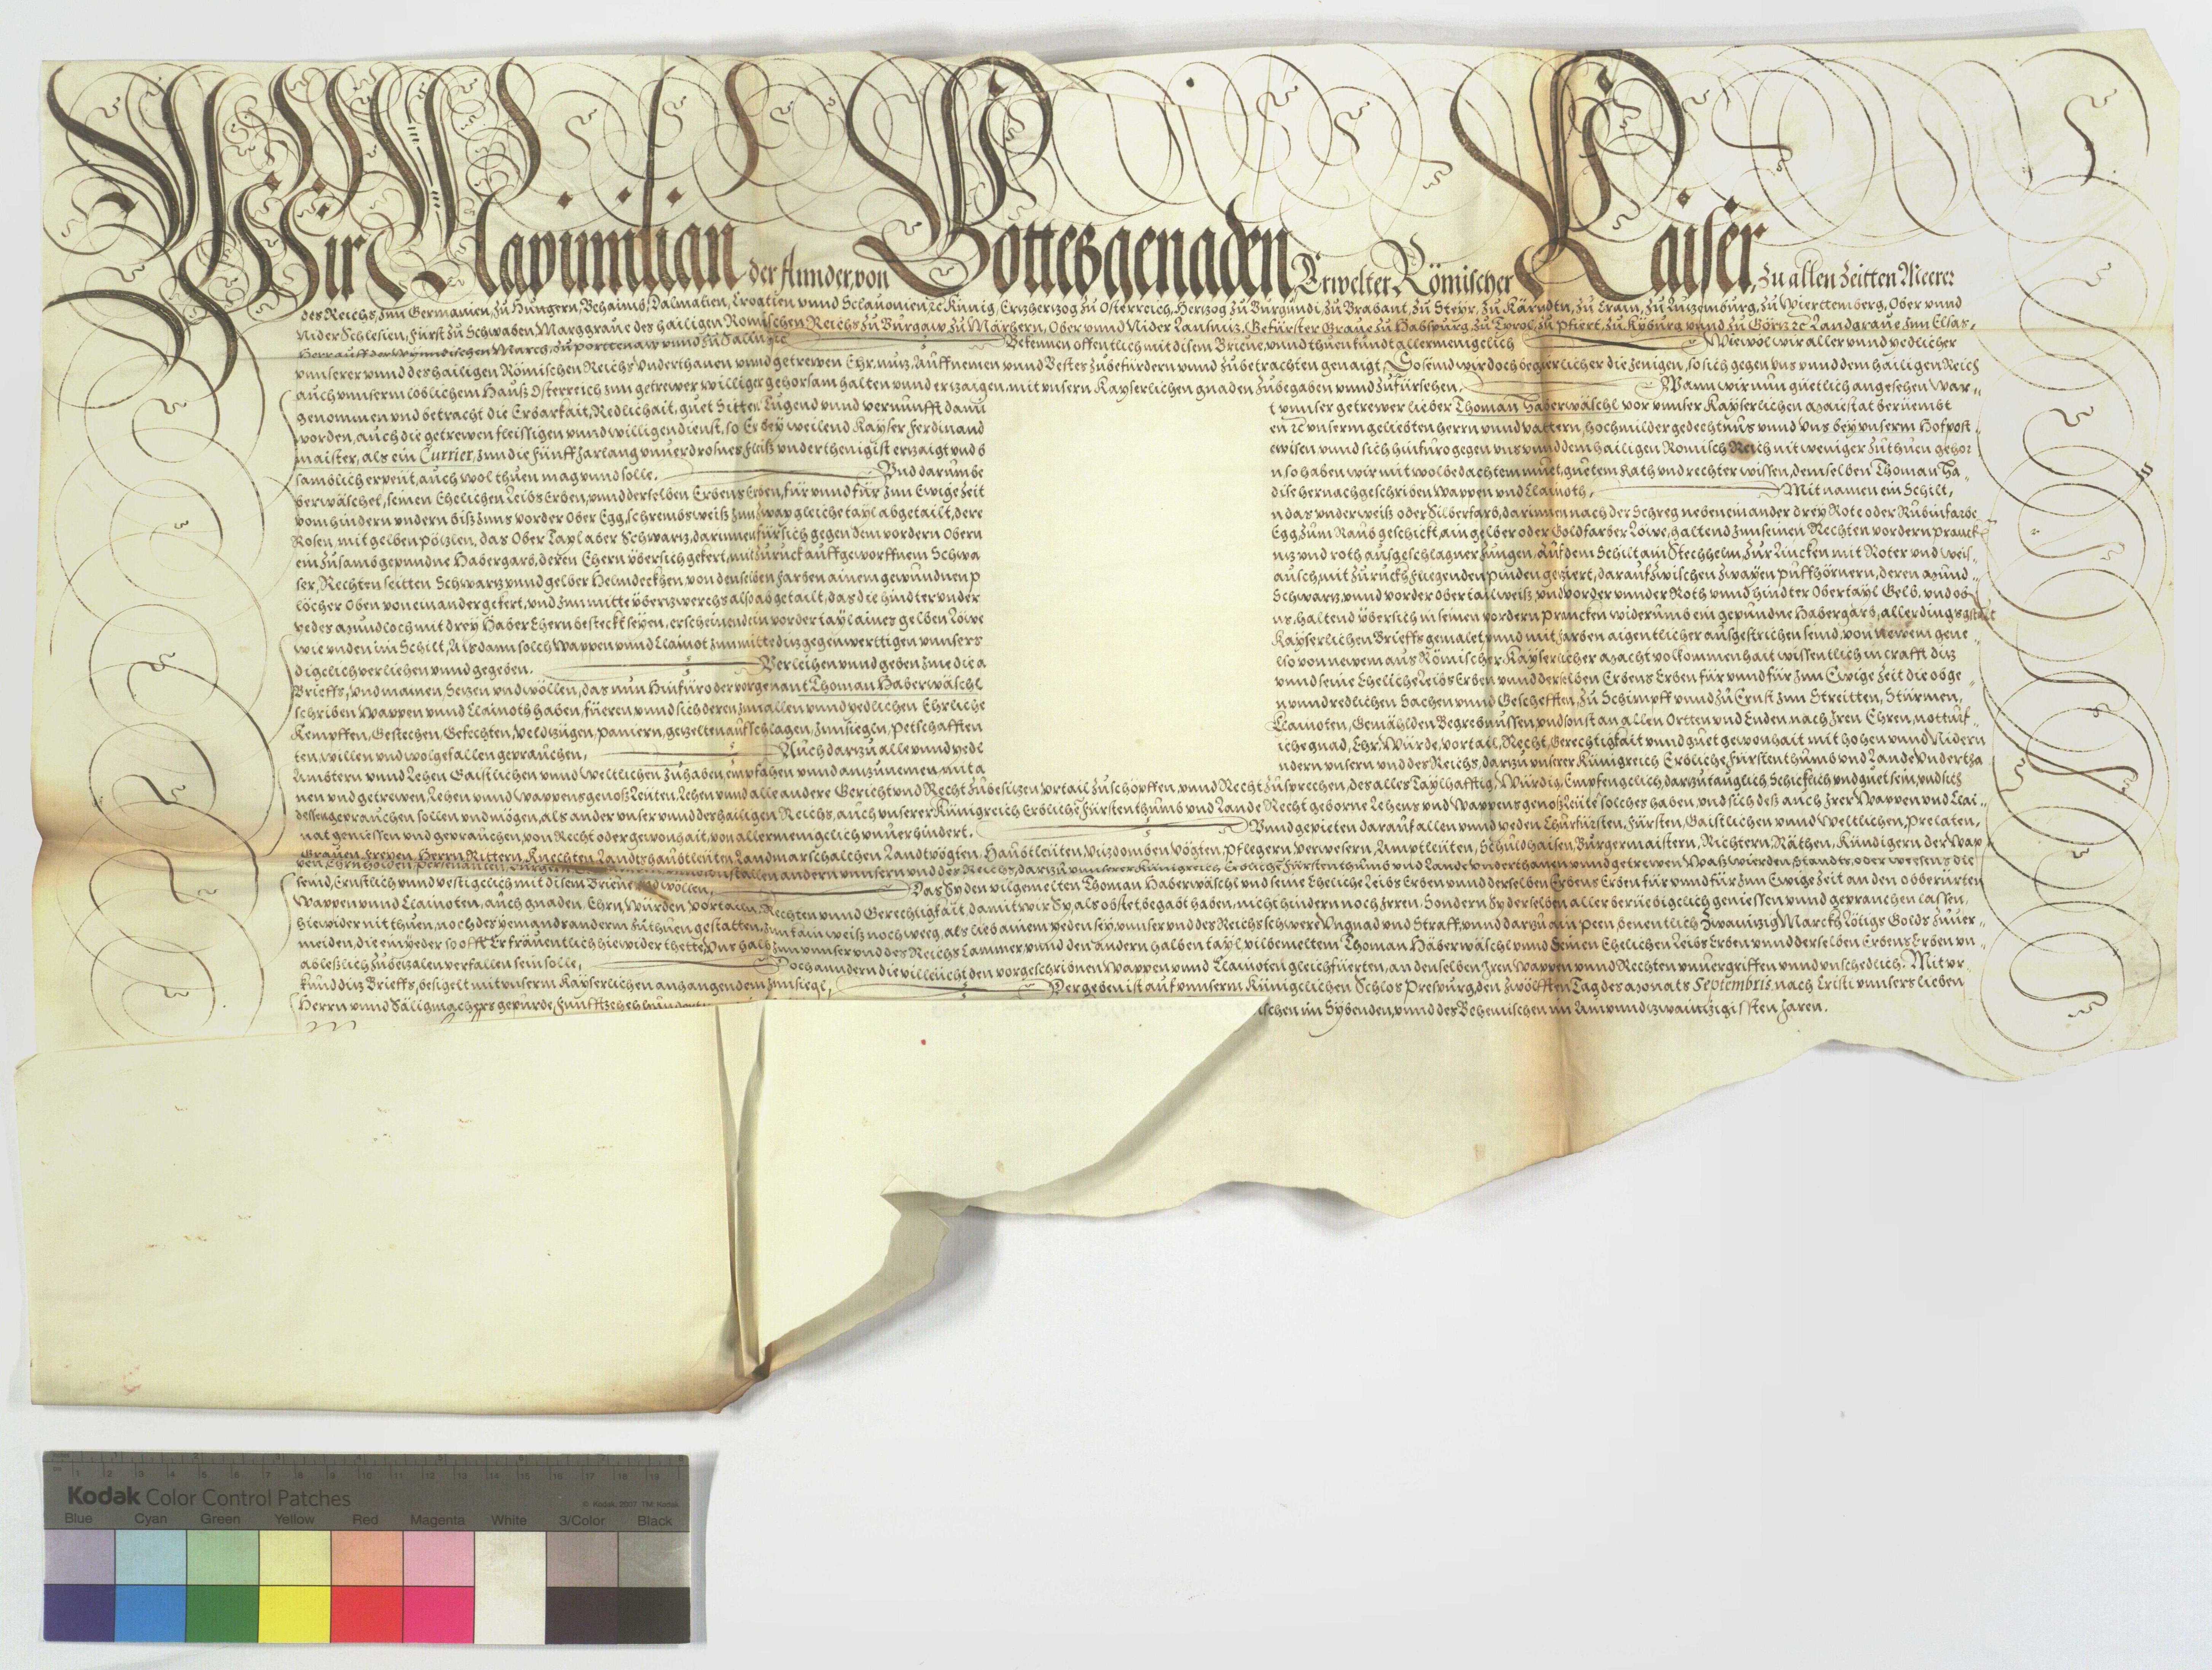 Wir Maximilian der Ander, von Gottes genaden Erwelter Römischer Kaiser, Zu allen Zeitten Meerer
des Reichs, Inn Germanien, Zu Hungern, Behaimb, Dalmatien, Croatien vnnd Sclauonien ꝛc Künig, Erzherzog Zu Osterreich, Hertzog Zu Burgundi, Zu Brabant, Zu Steyr, Zu Kärndtn, Zu Crain, Zu Luzemburg, Zu Wierttemberg, Ober vnnd
Nider Schlesien, Fürst Zu Schwaben Marggraue des hailigen Römischen Reichs Zu Burgaw Zu Märhern, Ober vnnd Nider Lausniz, Gefürster Graue Zu Habspurg Zu Tyrol, Zu Phiert, Zu Kyburg vnnd Zu Görz ꝛc Landgraue Inn Elsas,
Herr auf der Wynndischen March, Zu Porttenaw vnnd Zu Salins ꝛc Bekennen offentlich mit disem Brieue, vnnd thuen kundt allermenigelich Wiewol wir aller vnnd yedlicher
vnnserer vnnd des hailigen Römischen Reichs Vnderthanen vnnd getrewen Ehr, nuz, Auffnemen vnnd Bestes Zubefürdern vnnd Zubetrachten genaigt, So send wir doch begierlicher die Jenigen, so sich gegen vns vnnd dem hailigen Reich
auch vnnserm löblichem Hauß Osterreich Inn getrewer williger gehorsam halten vnnd erzaigen, mit vnsern Kayserlichen gnaden Zubegaben vnnd Zufürsehen. Wann wir nun güetlich angesehen War-
genomen vnd betracht die Erbarkait, Redlichait, guet Sitten Tugend vnnd vernunfft dann
t vnnser getrewer lieber Thoman Haberwäschl vor vnnser Kayserlichen Maiestat berüembt
worden, auch die getrewen fleissigen vnnd willigen dienst, so Er bey weilend Kayser Ferdinand
en ꝛc vnnserm geliebten herrn vnnd vattern, hochmilder gedechtnus vnnd vns bey vnserm Hofpost
maister, als ein Currier, Inn die fünff Jar lang vnuerdrosnes fleiß vnderthenigist erzaigt vnd b
ewisen vnnd sich hinfuro gegen vns vnnd dem hailigen Romisch Reich nit weniger Zuthuen gehor
samblich erpeut, auch wol thuen mag vnnd solle. Vnd darumbe
n so haben wir mit wolbedachtem muet, guetem Rath vnd rechter wissen, demselben Thoman Ha-
berwäschel, seinen Ehelichen Leibs Erben, vnnd derselben Erbens Erben, für vnnd für Inn Ewige Zeit
dise hernachgeschriben Wappen vnd Clainoth, Mit namen ein Schilt,
vom hindern vndern biß Inns vorder Ober Egg, schrembs weiß Inn Zway gleiche tayl abgetailt, dere
n das vnder weiß oder Silberfarb, darinnen nach der Schreg nebeneinander drey Rote oder Rubinfarbe
Rosen, mit gelben pözlen, das Ober Tayl aber Schwarz, darinnen fürsich gegen dem vordern Obern
Egg Zum Raub geschickt, ain gelber oder Goldfarber Löwe, haltend Inn seinen Rechten vordern pranck
ein Zusambgepundne Habergarb, deren Ehern ybersich gekert, mit Zuruck auffgeworffnem Schwa
nz vnd roth ausgeschlagner Zungen, Auf dem Schilt ain Stechhelm, Zur Lincken mit Roter vnd weis-
ser, Rechten seitten Schwarz vnnd gelber Helmdeckhen, von denselben farben ainem gewundnen p
ausch, mit Zuruckh fliegenden pinden geziert, darauf Zwischen Zwayen puffhörnern, deren Mund-
löcher Oben von einander gekert, vnd Inn mitte yberzwerchs also abgetailt, das die hindter vnder
Schwarz, vnnd vorder Ober tail weiß, vnd vorder vnnder Roth vnnd hindter Ober tayl Gelb, vnd ob
yedes Mundloch mit drey Haber Ehern besteckt seyen, erscheinend ein vorder tayl aines gelben Löwe
ns, haltend ybersich in seinen vordern prancken widerumb ein gepundne Habergarb, allerdings gstalt
wie vnden im Schilt, Als dann solch Wappen vnnd Clainot Inn mitte diz gegenwerttigen vnnsers
Kayserlichen Brieffs gemalet, vnnd mit farben aigentlicher ausgestrichen seind, von newem gene-
digclich verliehen vnnd gegeben. Verleihen vnnd geben Inne die a
lso von newem aus Römischer Kayserlicher Macht volkommenhait wissentlich in crafft diz
Brieffs, Vnd mainen, Sezen vnd wöllen, das nun Hinfüro der vorgenant Thoman Haberwäschl
vnnd seine Eheliche Leibs Erben vnnd derselben Erbens Erben für vnnd für Inn Ewige Zeit die obge-
schriben Wappen vnnd Clainoth haben, füeren vnnd sich deren Inn allen vnnd yedlichen Ehrliche
n vnnd redlichen Sachen vnnd Geschefften, Zu Schimpff vnnd Zu Ernst Inn Streitten, Stürmen,
Kempffen, Gestechen, Gefechten, Veldtzügen, Paniern, gezelten aufschlagen, Innsiegln, Petschafften
Clainoten, Gemählden Begrebnussen, vnd sonst an allen Ortten vnd Enden, nach Iren Ehren, notturf-
ten, willen vnd wolgefallen geprauchen, Auch darzu alle vnnd yedl
iche gnad, Ehr, Würde, vortail, Recht, Gerechtigkait vnnd guet gewonhait mit hohen vnnd Nidern
Ambtern vnnd Lehen Gaistlichen vnnd Weltlichen Zuhaben, empfahen vnnd anzunemen, mit a
ndern vnsern vnd des Reichs, darzu vnserer Künigreich Erbliche, Fürstenthumb vnd Lande Vndertha
nen vnd getrewen, Lehen vnnd Wappensgenoß Leuten, Lehen vnnd alle andere Gericht vnd Recht Zubesizen vrtail Zuschöpffen, vnnd Recht Zusprechen, des alles Taylhafftig, Würdig, Empfengclich, darzu tauglich Schicklich vnd guet sein, vnd sich
dessen geprauchen sollen vnd mögen, als ander vnser vnnd des hailigen Reichs, auch vnserer Künigreich Erbliche Fürstenthumb vnd Lande Recht geborne Lehens vnd Wappensgenoß Leüte solches haben, vnd sich deß auch Irer Wappen vnd Clai-
nat geniessen vnd geprauchen, von Recht oder gewonhait, von allermenigclich vnuerhindert. Vnnd gepieten darauf allen vnnd yeden Churfürsten, Fürsten, Gaistlichen vnnd Weltlichen, Prelaten,
Grauen, Freyen, Herrn, Rittern, Knechten, Landtshaubtleuten, Landmarschalchen, Landvögten, Haubtleuten, Vizdomben, Vögten, Pflegern, Verwesern, Amptleuten, Schuldhaisen, Burgermaistern, Richtern, Räthen, Kündigern der Wap
pen, Ehrnholden, Perseuanten, Burgern allen andern vnnsern vnd der Reichs, darzu vnnserer Künigreich Erbliche Fürstenthumb vnd Lande Vnderthanen vnnd getrewen Waß Wierden, Standts, oder weesens die
seind, Ernstlich vnnd vestigclich mit disem Brieue vnd wöllen, Das Sy den vilgemelten Thoman Haberwäschl vnd seine Eheliche Leibs Erben vnnd derselben Erbens Erben für vnnd für Inn Ewige Zeit an den obberürten
Wappen vnnd Clainoten, auch gnaden, Ehrn, Würden, Vortailn, Rechten vnnd Gerechtigkait, damit wir Sy, als obstet, begabt haben, nicht hindern noch Irren, Sondern Sy derselben aller berüebigclich geniessen vnnd geprauchen lassen,
hiewider nit thuen, noch des yemand andern Zuthuen gestatten, Inn kain weiß noch weeg, als lieb ainem yeden sey, vnnser vnd des Reichs schwere Vngnad vnd Straff, vnnd darzu ain Peen, benentlich Zwainzig Marckh Löttigs Golds Zuuer-
meiden, die ein yeder so offt Er fräuentlich hiewider thette, Vns halb Inn vnnser vnd des Reichs Cammer, vnnd den andern halben tayl vilbemeltem Thoman Haberwäschl vnnd Seinen Ehelichen Leibs Erben vnnd derselben Erbens Erben vn-
ableßlich Zubezalen verfallen sein solle, Doch anndern die villeucht den vorgeschribnen Wappen vnnd Clainoten gleich füerten, an denselben Iren Wappen vnnd Rechten vnuergriffen vnnd vnschedlich. Mit vr
kund diz Brieffs, besigelt mit vnserm Kayserlichen anhangendem Innsiegl, Der geben ist auf vnnserm Künigclichen Schlos Prespurg, den Zwölfften Tag des Monats Septembris, nach Cristi vnnsers lieben
Herrn vnnd Säligmachers gepurde, Funfftzehenhundert ischen im Sybenden, vnnd des Behemischen im Ainvnndzwainzigissten Jaren.
Kodak Color Control Patches
© Kodak, 2007 TM: Kodak
Blue Cyan Green Yellow Red Magenta White 3/Color Black